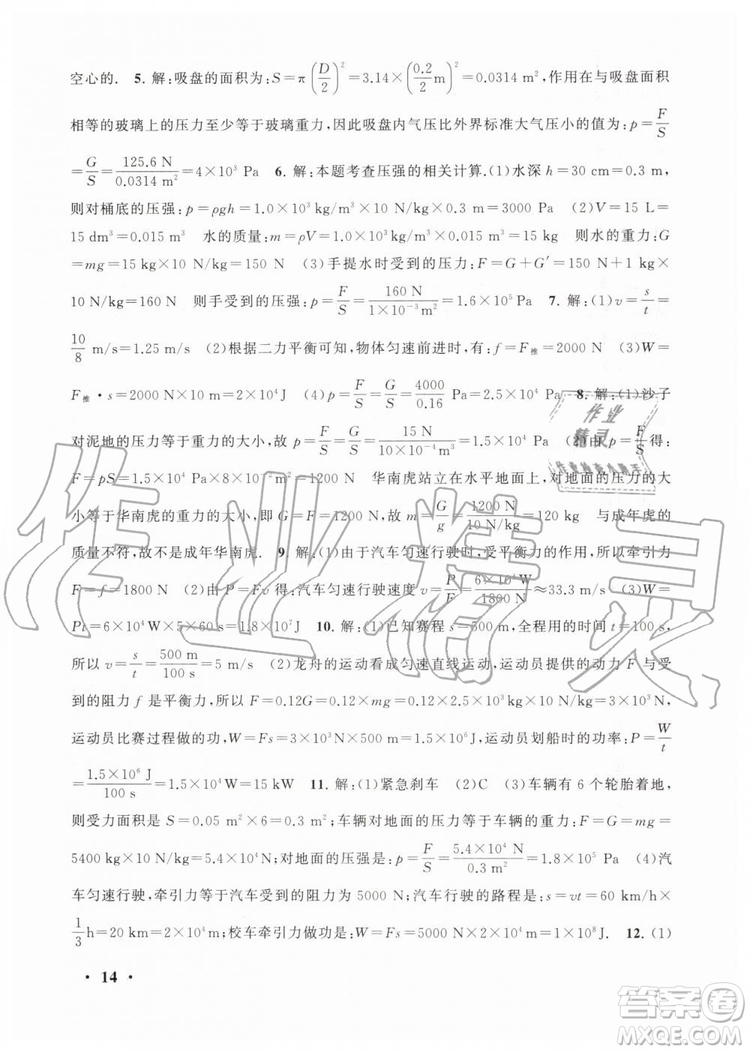 空心的. 5. 解:吸盘的面积为:S=π(D/2)²=3.14×(0.2/2 m)²=0.0314 m²,作用在与吸盘面积
相等的玻璃上的压力至少等于玻璃重力,因此吸盘内气压比外界标准大气压小的值为:p=F/S
=G/S=125.6 N/0.0314 m²=4×10³ Pa 6. 解:本题考查压强的相关计算.(1)水深 h=30 cm=0.3 m,
则对桶底的压强:p=ρgh=1.0×10³ kg/m³×10 N/kg×0.3 m=3000 Pa (2)V=15 L=
15 dm³=0.015 m³ 水的质量:m=ρV=1.0×10³ kg/m³×0.015 m³=15 kg 则水的重力:G
=mg=15 kg×10 N/kg=150 N (3)手提水时受到的压力:F=G+G′=150 N+1 kg×
10 N/kg=160 N 则手受到的压强:p=F/S=160 N/1×10⁻³ m²=1.6×10⁵ Pa 7. 解:(1)v=s/t=
10/8 m/s=1.25 m/s (2)根据二力平衡可知,物体匀速前进时,有:f=F推=2000 N (3)W=
F推·s=2000 N×10 m=2×10⁴ J (4)p=F/S=G/S=4000/0.16 Pa=2.5×10⁴ Pa 8. 解:(1)沙子
对泥地的压力等于重力的大小,故 p=F/S=G/S=15 N/10×10⁻⁴ m²=1.5×10⁴ Pa (2)由 p=F/S得:
F=pS=1.5×10⁴ Pa×800×10⁻⁴ m²=1200 N 华南虎站立在水平地面上,对地面的压力的大
小等于华南虎的重力的大小,即 G=F=1200 N,故 m=G/g=1200 N/10 N/kg=120 kg 与成年虎的
质量不符,故不是成年华南虎. 9. 解:(1)由于汽车匀速行驶时,受平衡力的作用,所以牵引力
F=f=1800 N (2)由 P=Fv 得:汽车匀速行驶速度 v=P/F=6×10⁴ W/1800 N≈33.3 m/s (3)W=
Pt=6×10⁴ W×5×60 s=1.8×10⁷ J 10. 解:(1)已知赛程 s=500 m,全程用的时间 t=100 s,
所以 v=s/t=500 m/100 s=5 m/s (2)龙舟的运动看成匀速直线运动,运动员提供的动力 F 与受
到的阻力 f 是平衡力,所以 F=0.12G=0.12×mg=0.12×2.5×10³ kg×10 N/kg=3×10³ N,
运动员比赛过程做的功,W=Fs=3×10³ N×500 m=1.5×10⁶ J 运动员划船时的功率:P=W/t
=1.5×10⁶ J/100 s=1.5×10⁴ W 11. 解:(1)紧急刹车 (2)C (3)车辆有 6 个轮胎着地,
则受力面积是 S=0.05 m²×6=0.3 m²;车辆对地面的压力等于车辆的重力:F=G=mg=
5400 kg×10 N/kg=5.4×10⁴ N;对地面的压强是:p=F/S=5.4×10⁴ N/0.3 m²=1.8×10⁵ Pa (4)汽
车匀速行驶,牵引力等于汽车受到的阻力为 5000 N;汽车行驶的路程是:s=vt=60 km/h×
1/3 h=20 km=2×10⁴ m;校车牵引力做功是:W=Fs=5000 N×2×10⁴ m=1×10⁸ J. 12. (1)
· 14 ·
作业精灵
作业
精灵
答案圈
MXQE.COM